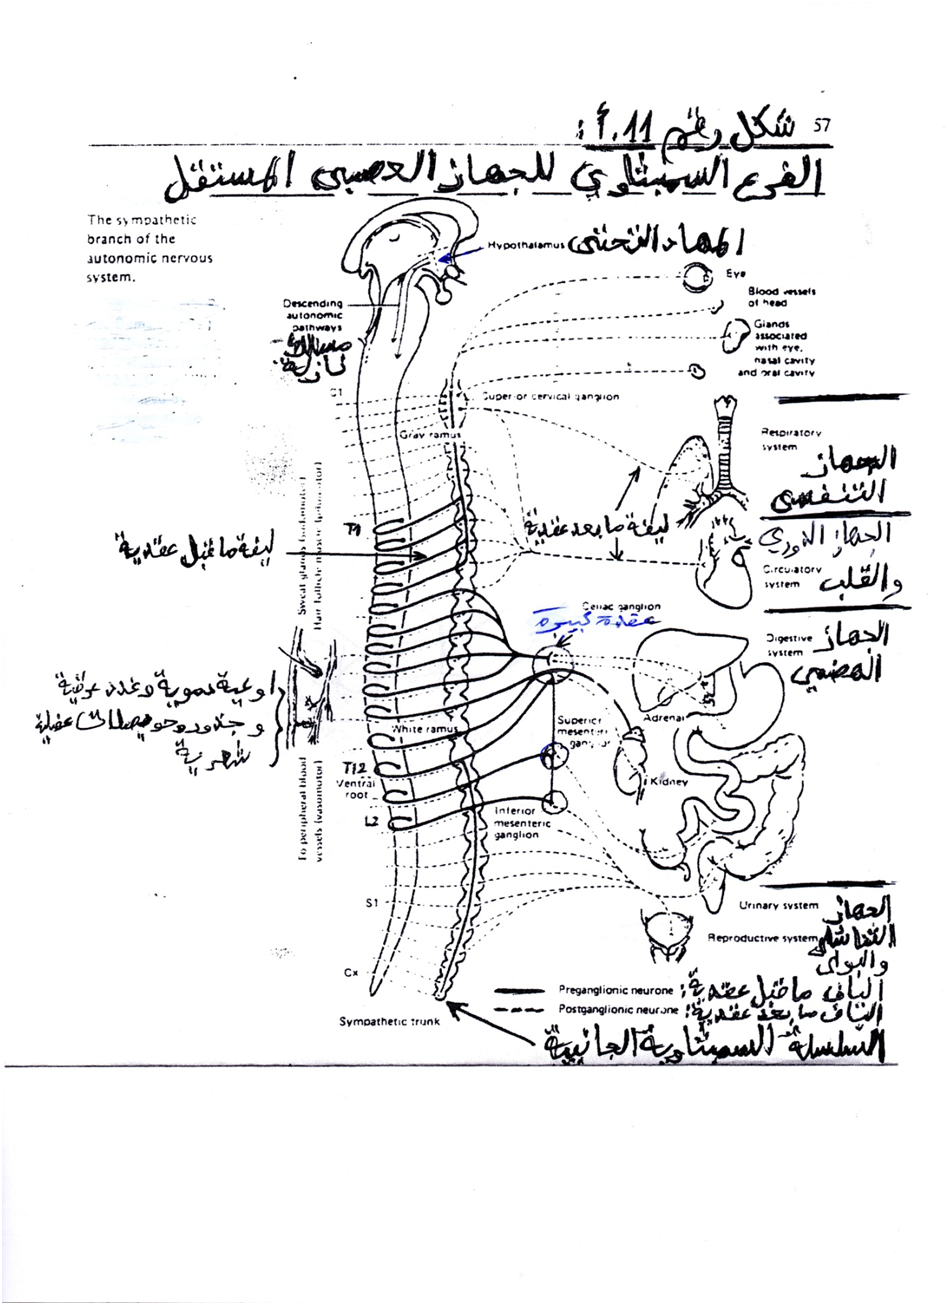 57
شكل رقم 11.أ:
الفرع السمبثاوي للجهاز العصبي المستقل
The sympathetic
branch of the
autonomic nervous
system.
Hypothalamus
المهاد التحتي
Eye
Blood vessels
of head
Descending
autonomic
pathways
مسالك
نازلة
Glands
associated
with eye,
nasal cavity
and oral cavity
C1
Superior cervical ganglion
Gray ramus
Respiratory
system
الجهاز
التنفسي
Sweat glands (sudomotor)
Hair follicle muscle (pilomotor)
T1
ليفة ما قبل عقدية
ليفة ما بعد عقدية
الجهاز الدوري
Circulatory
system
والقلب
Celiac ganglion
عقدة كبيرة
Digestive
system
الجهاز
الهضمي
اوعية دموية وغدد عرقية
و جذور وحويصلات عضلية
شعرية
Adrenal
White ramus
Superior
mesenteric
ganglion
T12
Ventral
root
Kidney
To peripheral blood
vessels (vasomotor)
L2
Inferior
mesenteric
ganglion
S1
Urinary system
الجهاز
Reproductive system
التناسلي
والبولي
Cx
Preganglionic neurone
الياف ما قبل عقدية:
Postganglionic neurone
الياف ما بعد عقدية:
Sympathetic trunk
السلسلة السمبثاوية الجانبية